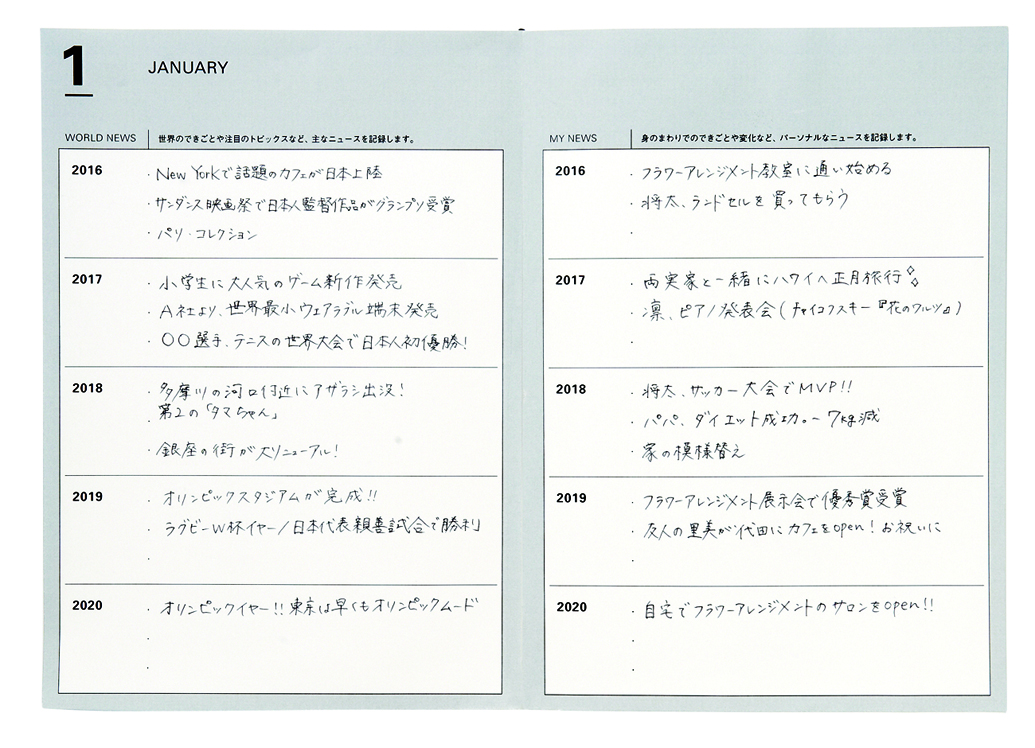 1
JANUARY
WORLD NEWS
世界のできごとや注目のトピックスなど、主なニュースを記録します。
2016
・New Yorkで話題のカフェが日本上陸
・サンダンス映画祭で日本人監督作品がグランプリ受賞
・パリ・コレクション
2017
・小学生に大人気のゲーム新作発売
・A社より、世界最小ウェアラブル端末発売
・〇〇選手、テニスの世界大会で日本人初優勝!
2018
・多摩川の河口付近にアザラシ出没!
・第2の「タマちゃん」
・銀座の街が大リニューアル!
2019
・オリンピックスタジアムが完成!!
・ラグビーW杯イヤー/日本代表親善試合で勝利
・
2020
・オリンピックイヤー!!東京は早くもオリンピックムード
・
・
MY NEWS
身のまわりでのできごとや変化など、パーソナルなニュースを記録します。
2016
・フラワーアレンジメント教室に通い始める
・将太、ランドセルを買ってもらう
・
2017
・両実家と一緒にハワイへ正月旅行
・凛、ピアノ発表会(チャイコフスキー『花のワルツ』)
・
2018
・将太、サッカー大会でMVP!!
・パパ、ダイエット成功。−7kg減
・家の模様替え
2019
・フラワーアレンジメント展示会で優秀賞受賞
・友人の里美が代田にカフェをopen!お祝いに
・
2020
・自宅でフラワーアレンジメントのサロンをopen!!
・
・